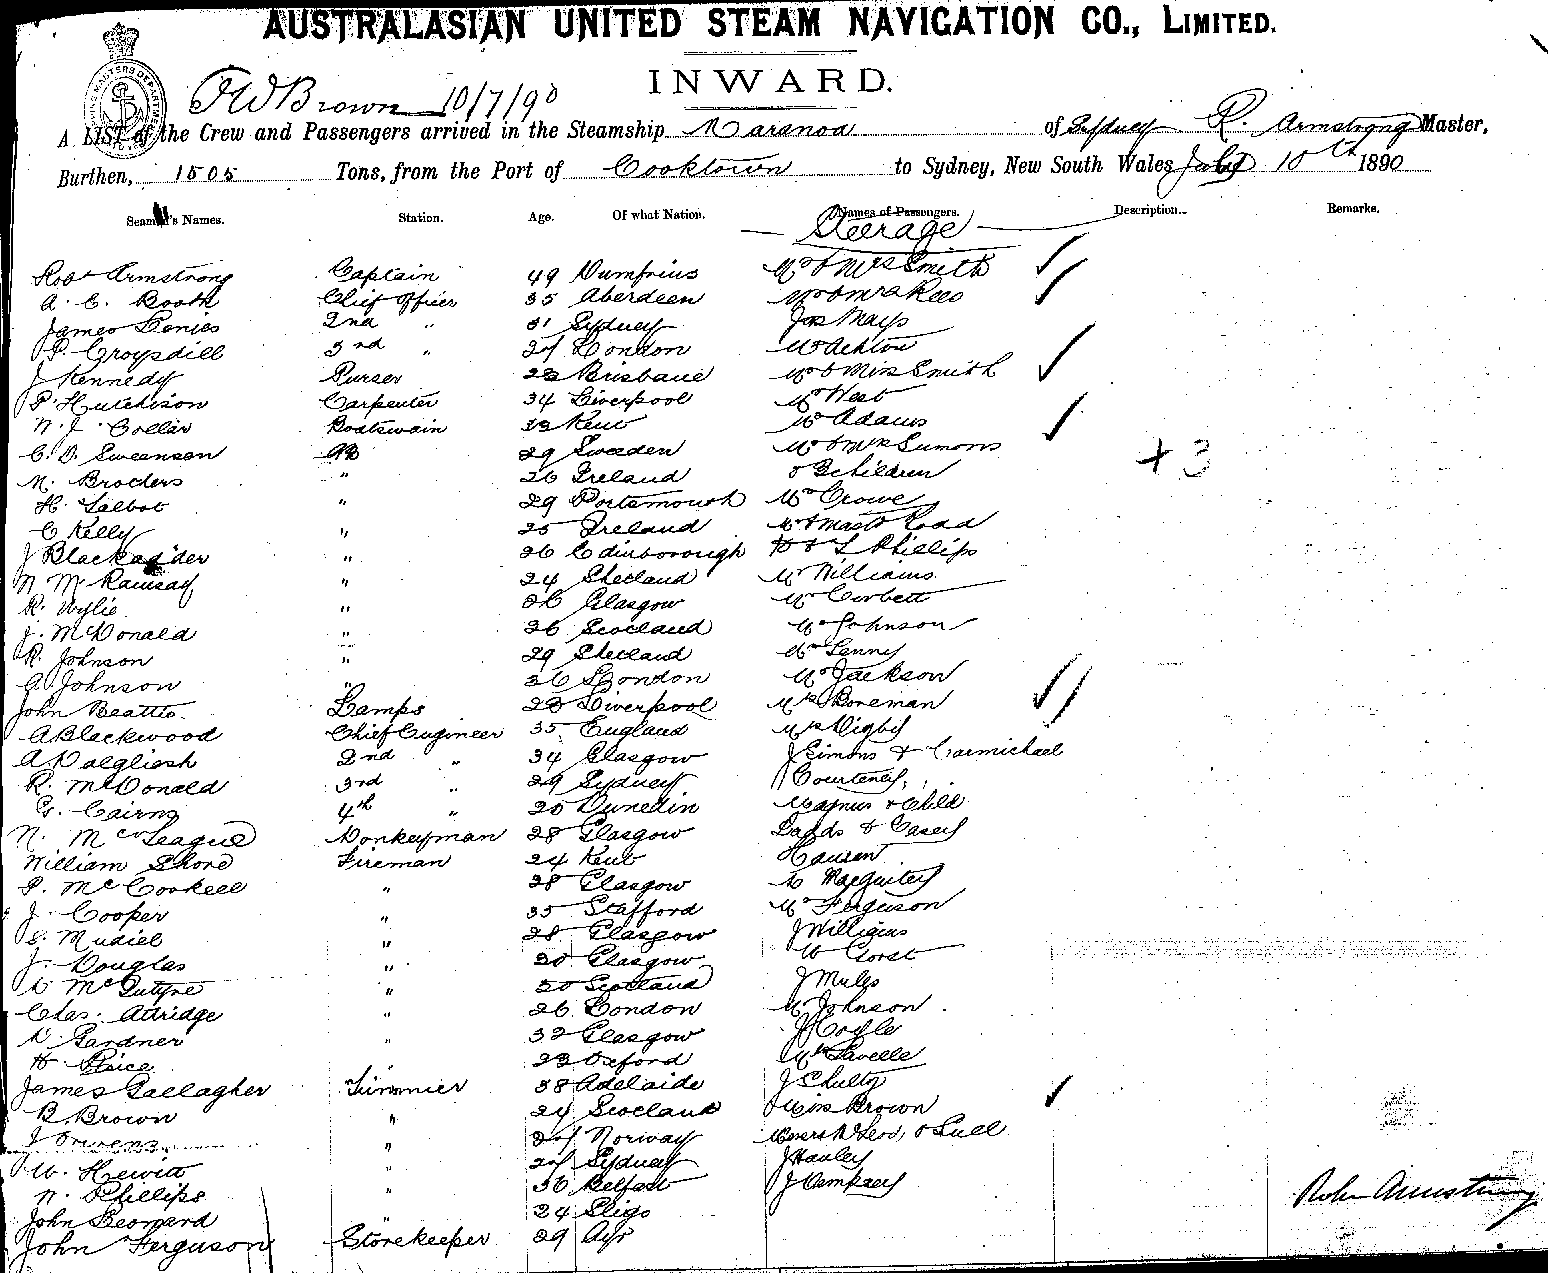 AUSTRALASIAN UNITED STEAM NAVIGATION CO., LIMITED.
INWARD.
F W Brown 10/7/90
A LIST of the Crew and Passengers arrived in the Steamship Maranoa of Sydney R. Armstrong Master,
Burthen, 1505 Tons, from the Port of Cooktown to Sydney, New South Wales July 10th 1890
Seamen's Names. Station. Age. Of what Nation. Names of Passengers. Description. Remarks.
Steerage
Robt Armstrong Captain 49 Dumfries Mr & Mrs Smith
A. C. Booth Chief Officer 35 Aberdeen Mr & Mrs Rees
James 2nd " 31 Sydney Jas Mays
P. Croysdill 3rd " 27 London Mr Ashton
J Kennedy Purser 23 Brisbane Mr & Miss Smith
P. Hutchison Carpenter 34 Liverpool Mr West
N. J. Collar Boatswain 32 Kent Mr Adams
C. O. Sweanson AB 29 Sweden Mr & Mrs Simons
M. Broders " 26 Ireland & 3 children
H. Talbot " 29 Portsmouth Mr Crowe
+ 3
C Kelly " 25 Ireland Mr & Mastr Rodd
J Blackadder " 26 Edinborough & L Phillips
N McRamsay " 24 Shetland Mr Williams
R. Wylie " 26 Glasgow Mr Corbett
J. McDonald " 26 Scotland Mr Johnson
R. Johnson " 29 Shetland Mr Lenny
A. Johnson " 26 London Mr Jackson
John Beattie Lamps 23 Liverpool Mrs Boreman
A Blackwood Chief Engineer 35 England Mrs Digby
A Dalgliesh 2nd " 34 Glasgow J Simons & Carmichael
R. McDonald 3rd " 29 Sydney Courtenay
G. Cairns 4th " 25 Dunedin Magnus & Child
N. McLeague Donkeyman 28 Glasgow Dadds & Casey
William Shore Fireman 24 Kent Hansen
P. McCorkell " 28 Glasgow
J. Cooper " 35 Stafford Mr Ferguson
S. Mudiel " 28 Glasgow J Williams
J. Douglas " 30 Glasgow W Gorst
D McIntyre " 30 Scotland J Miles
Chas. Attridge " 26 London Mr Johnson
D Gardner " 32 Glasgow J Coyle
H. Price " 23 Oxford Mrs Lavelle
James Gallagher Trimmer 38 Adelaide J Shultz
B. Brown " 24 Scotland Miss Brown
J Owens " 27 Norway Messrs McLeod, & Lull
W. Hewitt " 27 Sydney J Hanley
N. Phillips " 36 Belfast J Dempsey
John Leonard " 24 Sligo
John Ferguson Storekeeper 29 Ayr
Robt Armstrong